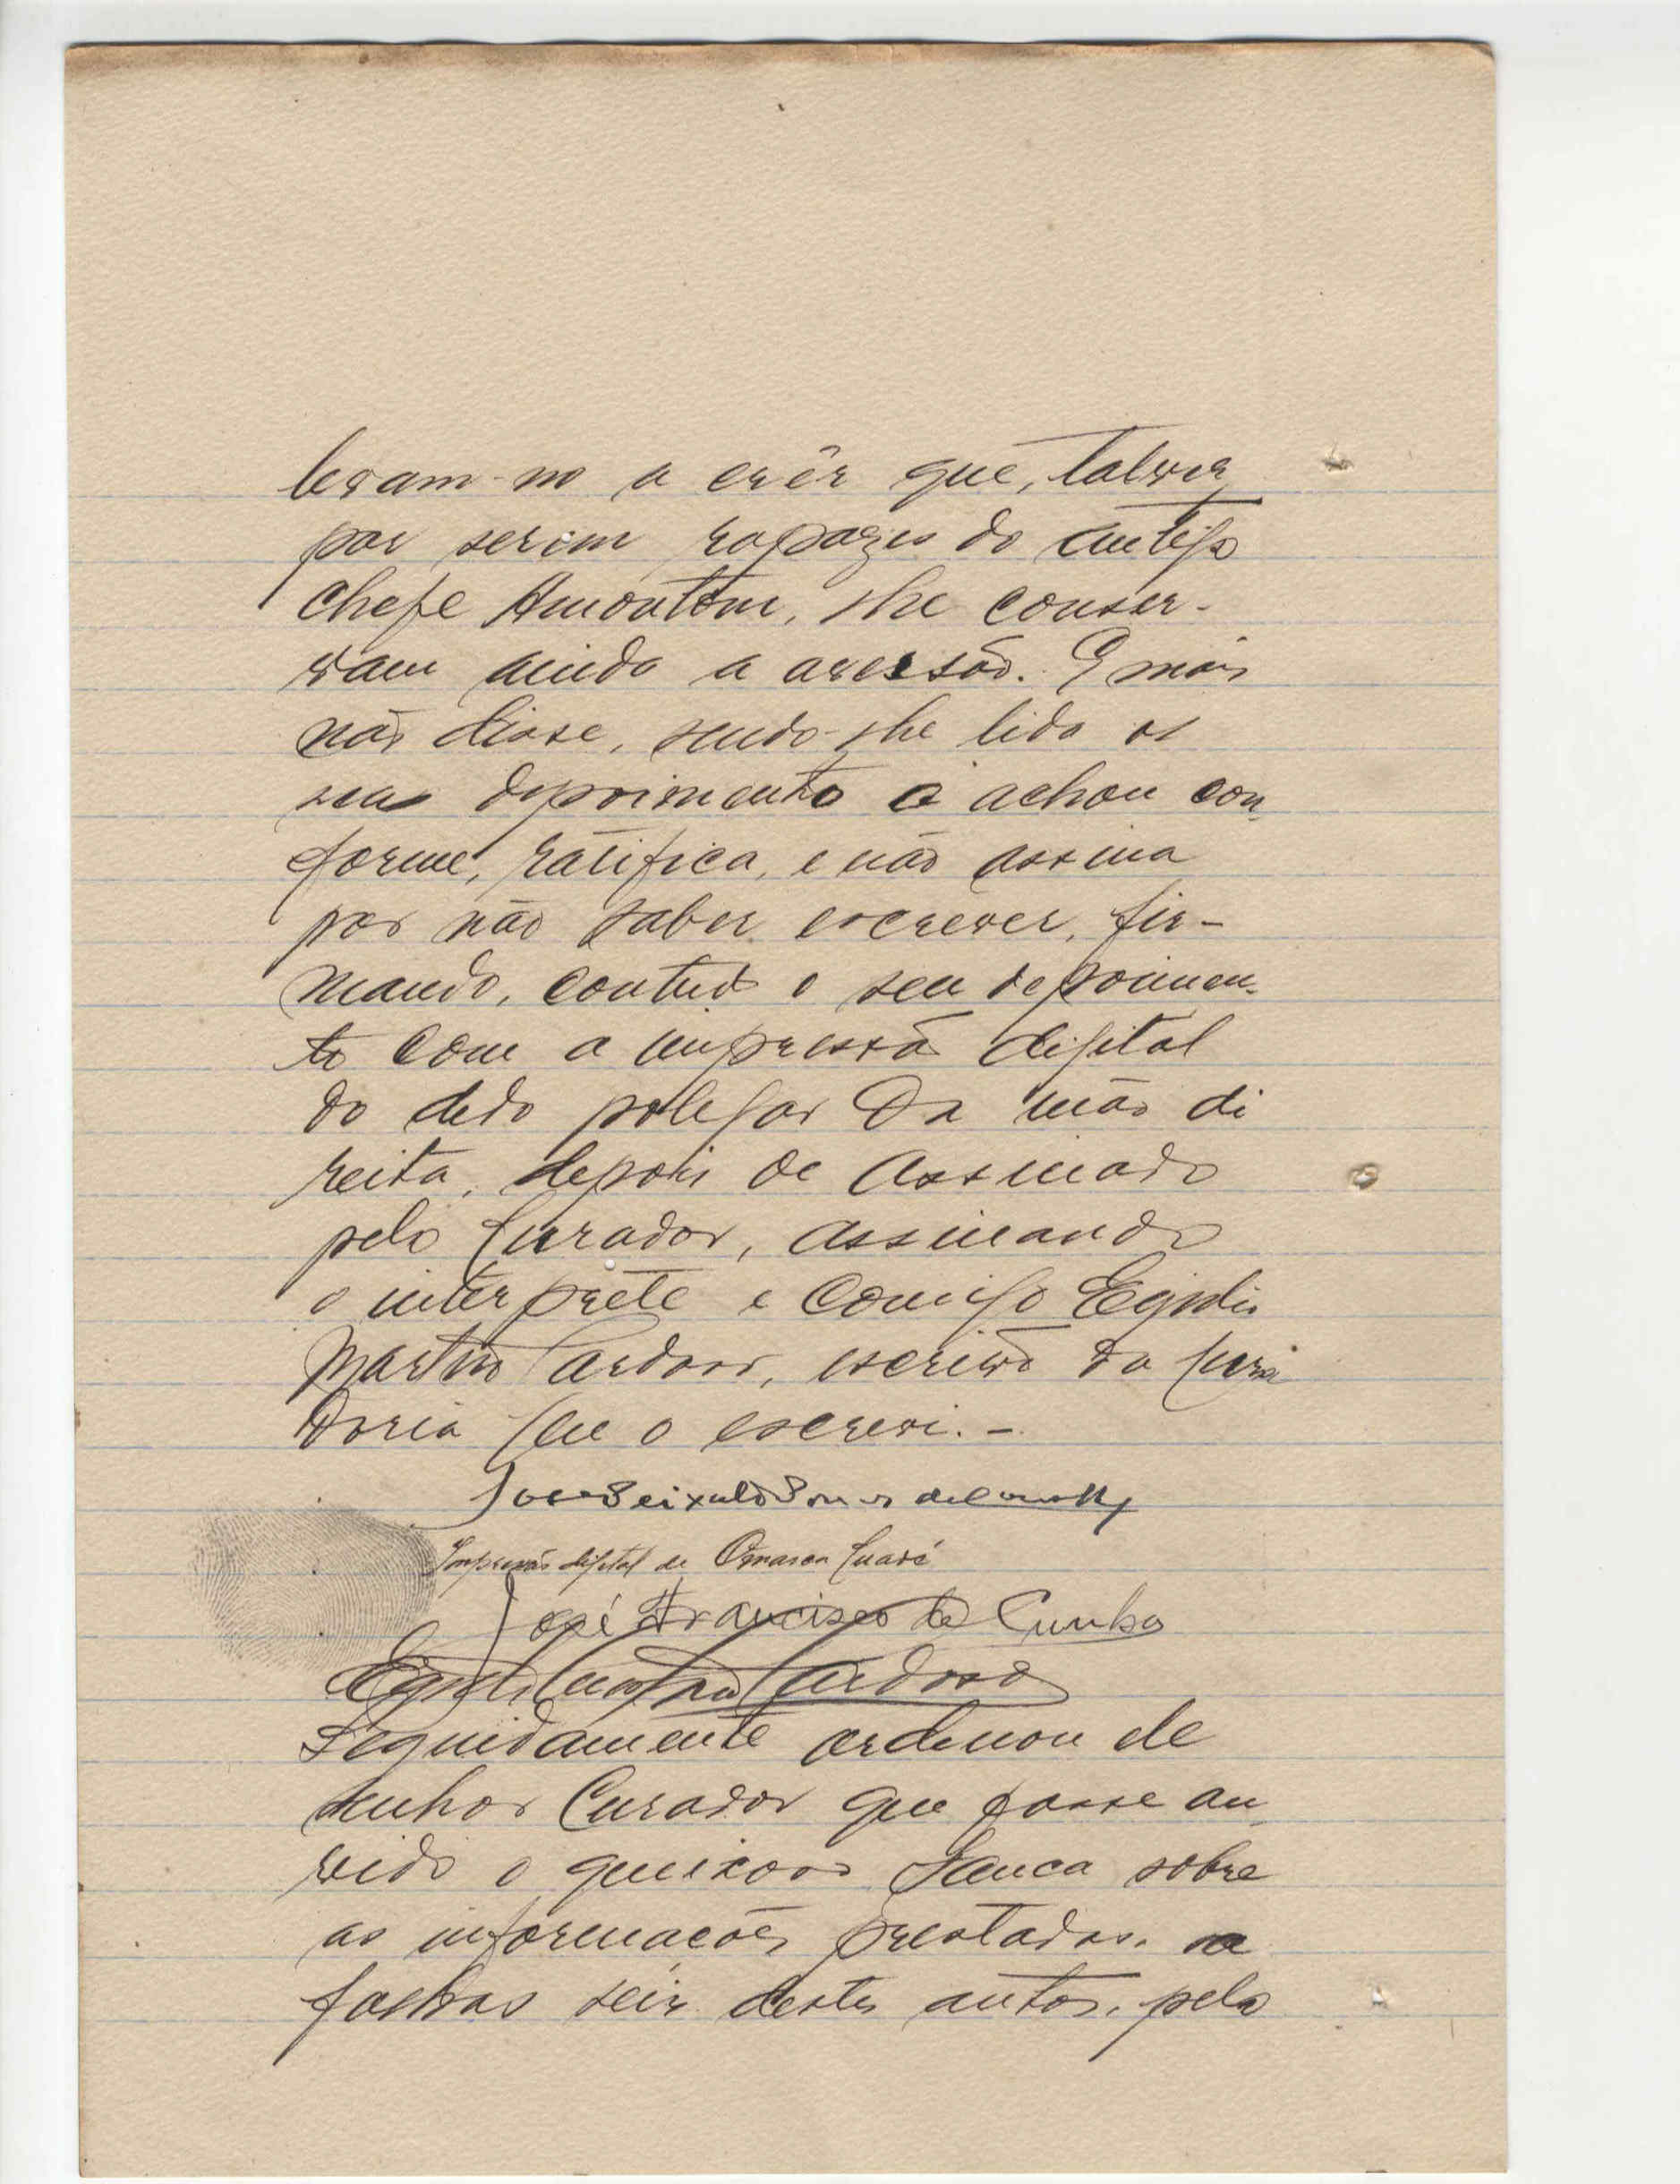 levam-no a crêr que, talvez
por serem rapazes do antigo
chefe, lhe conser-
vam ainda a aversão. E mais
não disse, sendo-lhe lido os
seus depoimento o achou con-
forme, ratifica, e não assina
por não saber escrever, fir-
mando, contudo o seu depoimen-
to com a impressão digital
do dedo polegar da mão di
reita, depois de assinado
pelo Curador, assinando
o interprete e comigo Egidio
Martins Cardoso, escrivão da Cura
doria que o escrevi. -
Impressão digital de
José Francisco da Cunha
Egidio Martins Cardoso
Seguidamente ordenou ele
senhor Curador que fosse ou-
vido o queixoso Sanca sobre
as informações prestadas. a
folhas seis destes autos, pelo